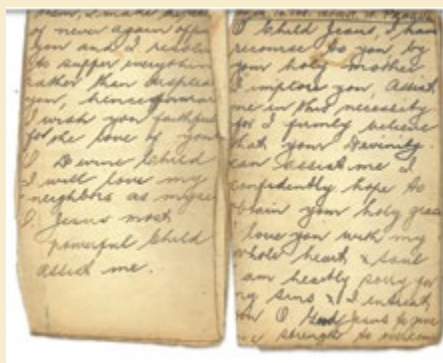 of never again offen
you and I resolve
to suffer everything
rather than displease
you, henceforward
I wish you faithful
for the love of you
O Devine Child
I will love my
neighbors as myse
O Jesus most
powerful Child
assist me.
O Child Jesus, I have
recourse to you by
your holy mother
I implore you, Assist
me in this necessity
for I firmly believe
that your Devinity
can assist me I
confidently hope to
obtain your holy grace
love you with my
whole heart & soul
am heartly sorry for
my sins & I entreat
you O Jesus to give
me strength to overcome